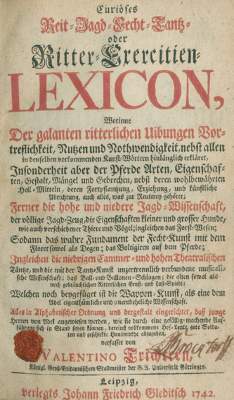 Curiöses
Reit-Jagd-Fecht-Tantz-
oder
Ritter-Exercitien-
LEXICON,
Worinne
Der galanten ritterlichen Uibungen Vor-
treflichkeit, Nutzen und Nothwendigkeit, nebst allen
in denselben vorkommenden Kunst-Wörtern hinlänglich erkläret,
Insonderheit aber der Pferde Arten, Eigenschaf-
ten, Gestalt, Mängel und Gebrechen, nebst deren wohlbewährten
Heil-Mitteln, deren Fortpflantzung, Erziehung, und künstliche
Abrichtung, auch alles, was zur Reuterey gehöret;
Ferner die hohe und niedere Jagd-Wissenschaft,
der völlige Jagd-Zeug, die Eigenschaften kleiner und grosser Hunde,
wie auch verschiedener Thiere und Vögel, ingleichen das Forst-Wesen;
Sodann das wahre Fundament der Fecht-Kunst mit dem
Floret sowol als Degen; das Voltigiren auf dem Pferde;
Ingleichen die niedrigen Cammer- und hohen Theatralischen
Täntze, und die mit der Tantz-Kunst unzertrennlich verbundene musicali-
sche Wissenschaft; das Ball- und
Welchen noch beygefüget ist die Wappen-Kunst, als eine dem
Adel eigenthümliche und unentbehrliche Wissenschaft.
Alles in Alphabetischer Ordnung und dergestalt eingerichtet, daß junge
Herren von Adel angewiesen werden, wie sie durch eine
verfasset von
VALENTINO Trichtern,
Königl. Groß-Britannischen Stallmeister der G. A. Universität Göttingen.
Leipzig,
verlegts Johann Friedrich Gleditsch 1742.